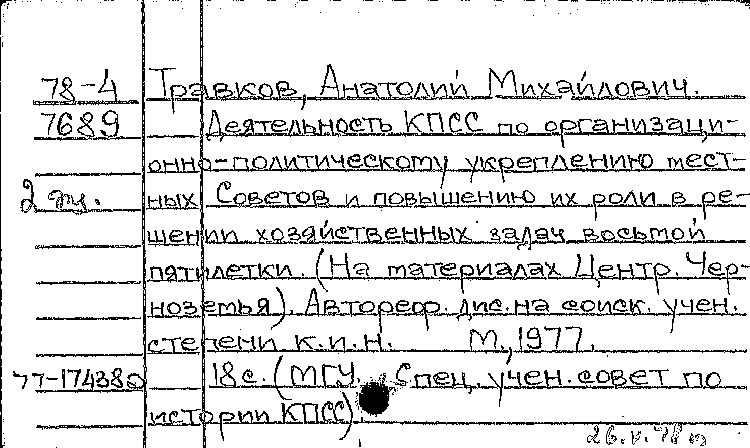 78-4 Травков, Анатолий Михайлович.
7689 Деятельность КПСС по организаци-
онно-политическому укреплению мест-
2 эк. ных Советов и повышению их роли в ре-
шении хозяйственных задач восьмой
пятилетки. (На материалах Центр. Чер-
ноземья). Автореф. дис. на соиск. учен.
степени к.и.н. М., 1977.
77-17438 18 с. (МГУ. Спец. учен. совет по
истории КПСС)